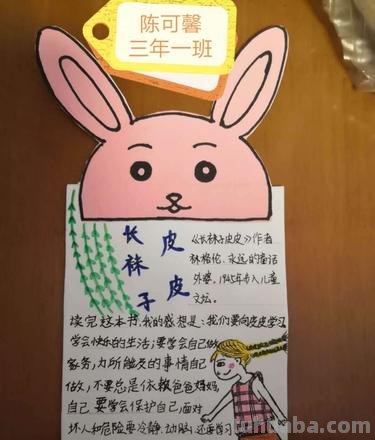 陈可馨
三年一班
长袜子
皮皮
《长袜子皮皮》作者
林格伦、永远的童话
外婆,1945年步入儿童
文坛。
读完这本书,我的感想是:我们要向皮皮学习
学会快乐的生活;要学会自己做
家务,力所能及的事情自己
做,不要总是依赖爸爸妈妈,
自己要学会保护自己,面对
坏人和危险要冷静、动脑;还要学习
tundaba.com